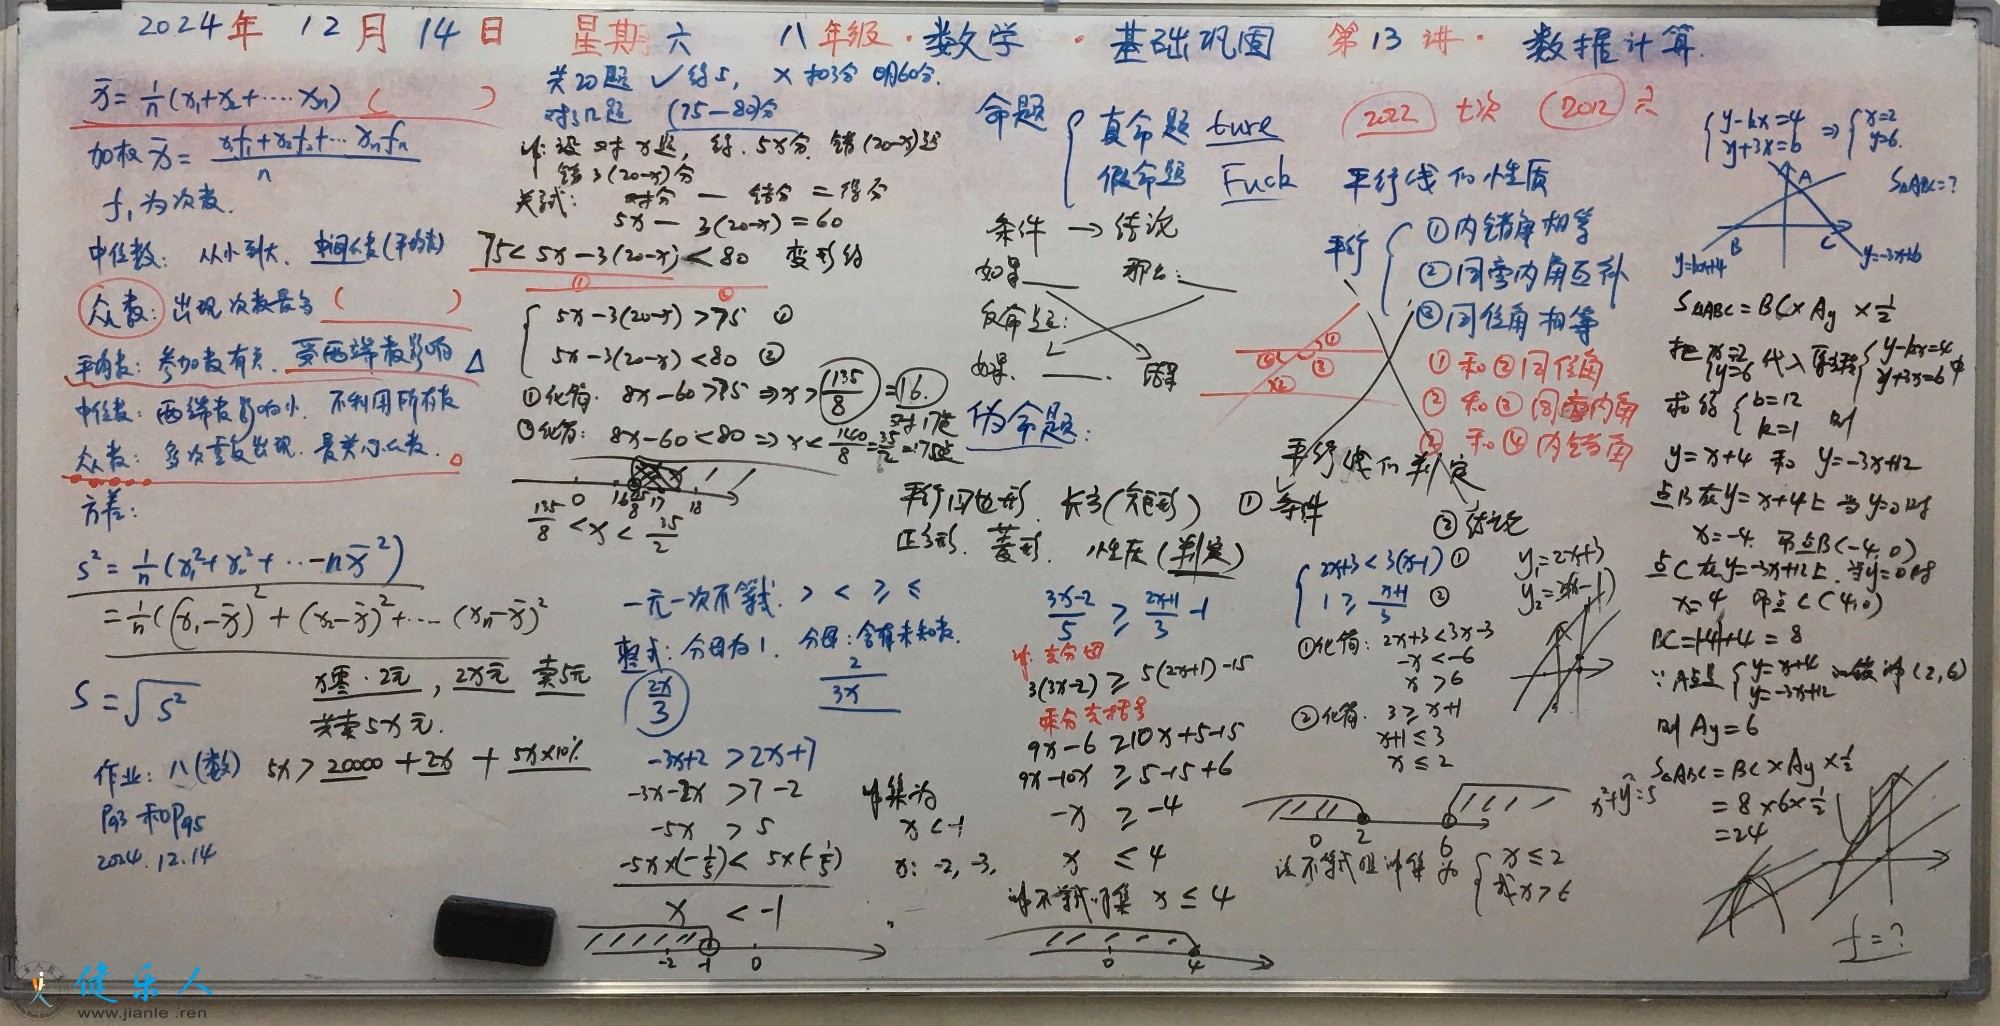 2024年 12月 14日 星期六 八年级·数学·基础巩固 第13讲· 数据计算.
x̄= 1/n (x₁+x₂+····xₙ) (    )
加权 x̄= (x₁f₁+x₂f₂+··· xₙfₙ)/n
f₁为次数.
中位数: 从小到大. 中间公数(平均数)
众数: 出现次数最多 (    )
平均数: 参加数有关. 受两端数影响 △
中位数: 两端数影响小. 不利用所有数
众数: 多次重复出现. 最关心公数. △
方差:
s²= 1/n (x₁²+x₂²+···-n x̄²)
= 1/n ((x₁-x̄)²+(x₂-x̄)²+···· (xₙ-x̄)²
S=√s²
x零·2元, 2x元 卖5元
共卖5x元.
5x > 20000 + 2x + 5x×10%
作业: 八(数)
P93 和P95
2024.12.14
共20题 ✓得5, × 扣3分 明60分.
对几题 (75—80)分
解: 设 对 x题, 得. 5x分. 错(20-x)题
错 3(20-x)分
关系式: 对分 — 错分 = 得分
5x — 3(20-x) = 60
75< 5x-3(20-x) < 80 变形得
① ②
5x-3(20-x) >75 ①
5x-3(20-x) <80 ②
①化简. 8x-60>75 ⇒ x> 135/8 =16.
对17题
②化简: 8x-60<80 ⇒ x< 140/8 = 35/2 =17.5题
0 16 17 18
135/8 < x < 35/2
一元一次不等式. > < ≥ ≤
整式: 分母为1. 分母:含有未知数.
2x/3 2/3x
-3x+2 > 2x+7
-3x-2x >7-2
-5x > 5
-5x×(-1/5) < 5×(-1/5)
x < -1
-2 -1 0
解集为
x<-1
x: -2, -3,
命题
真命题 ture
假命题 Fuck
条件 → 结论
如果____ 那么: ____
反命题:
如果. ____. 结果
伪命题:
平行四边形. 长方(矩形)
正方形. 菱形. 性质(判定)
(3x-2)/5 ≥ (2x+1)/3 -1
解: 去分母
3(3x-2) ≥ 5(2x+1)-15
乘分去括号
9x-6 ≥10x+5-15
9x-10x ≥ 5-15+6
-x ≥ -4
x ≤ 4
解不等式解集 x ≤ 4
0 4
2022 七次 (2012) 六
平行线的性质
平行
①内错角相等
②同旁内角互补
③同位角相等
①和②同位角
②和③同旁内角
③和④内错角
平行线的判定
①条件
②结论
2x+3<3(x-1) ①
1≥ (x+1)/3 ②
y₁=2x+3
①化简: 2x+3<3x-3
-x<-6
x>6
②化简. 3≥x+1
x+1≤3
x≤2
0 2 6
该不等式组解集为 x≤2
或x>6
y-kx=4
y+3x=b
⇒ x=2
y=6.
S△ABC=?
A B C
y=kx+4 y=-3x+b
S△ABC=BC×Ay×1/2
把 x=2
y=6 代入 原方程 y-kx=4
y+3x=b 中
求得 b=12
k=1 则
y=x+4 和 y=-3x+12
点B在y=x+4上 当y=0时
x=-4. 即点B(-4,0)
点C在y=-3x+12上. 当y=0时
x=4 即点C(4,0)
BC=|-4|+4=8
∵A点是 y=x+4
y=-3x+12 的解 即(2,6)
则 Ay=6
S△ABC=BC×Ay×1/2
=8×6×1/2
=24
x²+y²=5
f=?
健乐人
www.jianle.ren